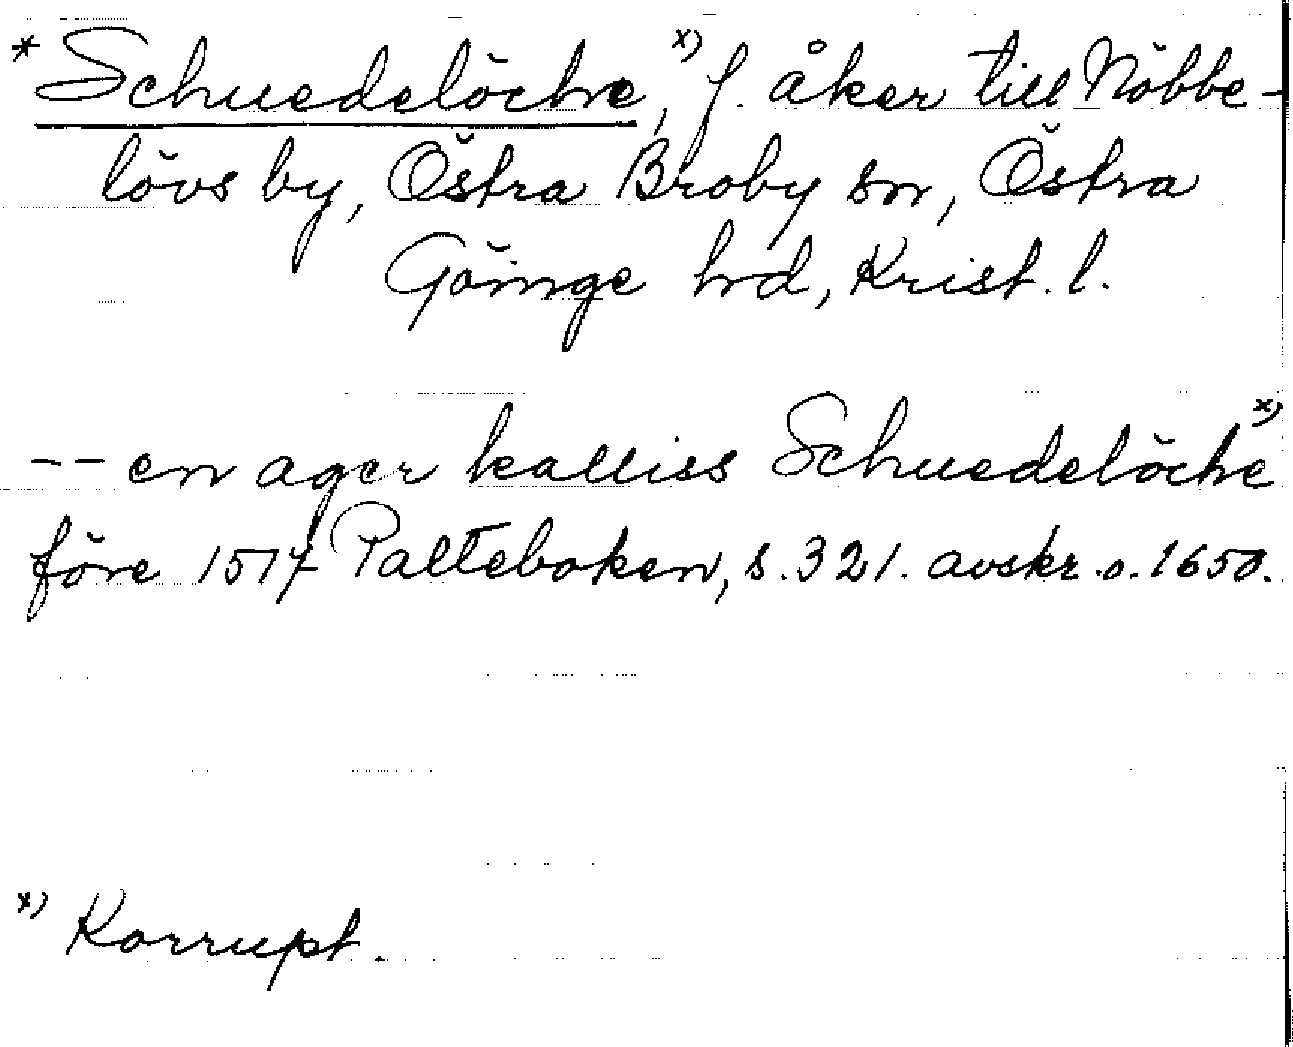 * Schuedelöche,ˣ⁾ f. åker till Nöbbe-
lövs by, Östra Broby sn, Östra
Göinge hrd, Krist. l.
-- en ager kalliss Schuedelöcheˣ⁾
före 1517 Palteboken, s. 321. avskr. o. 1650.
ˣ⁾ Korrupt.